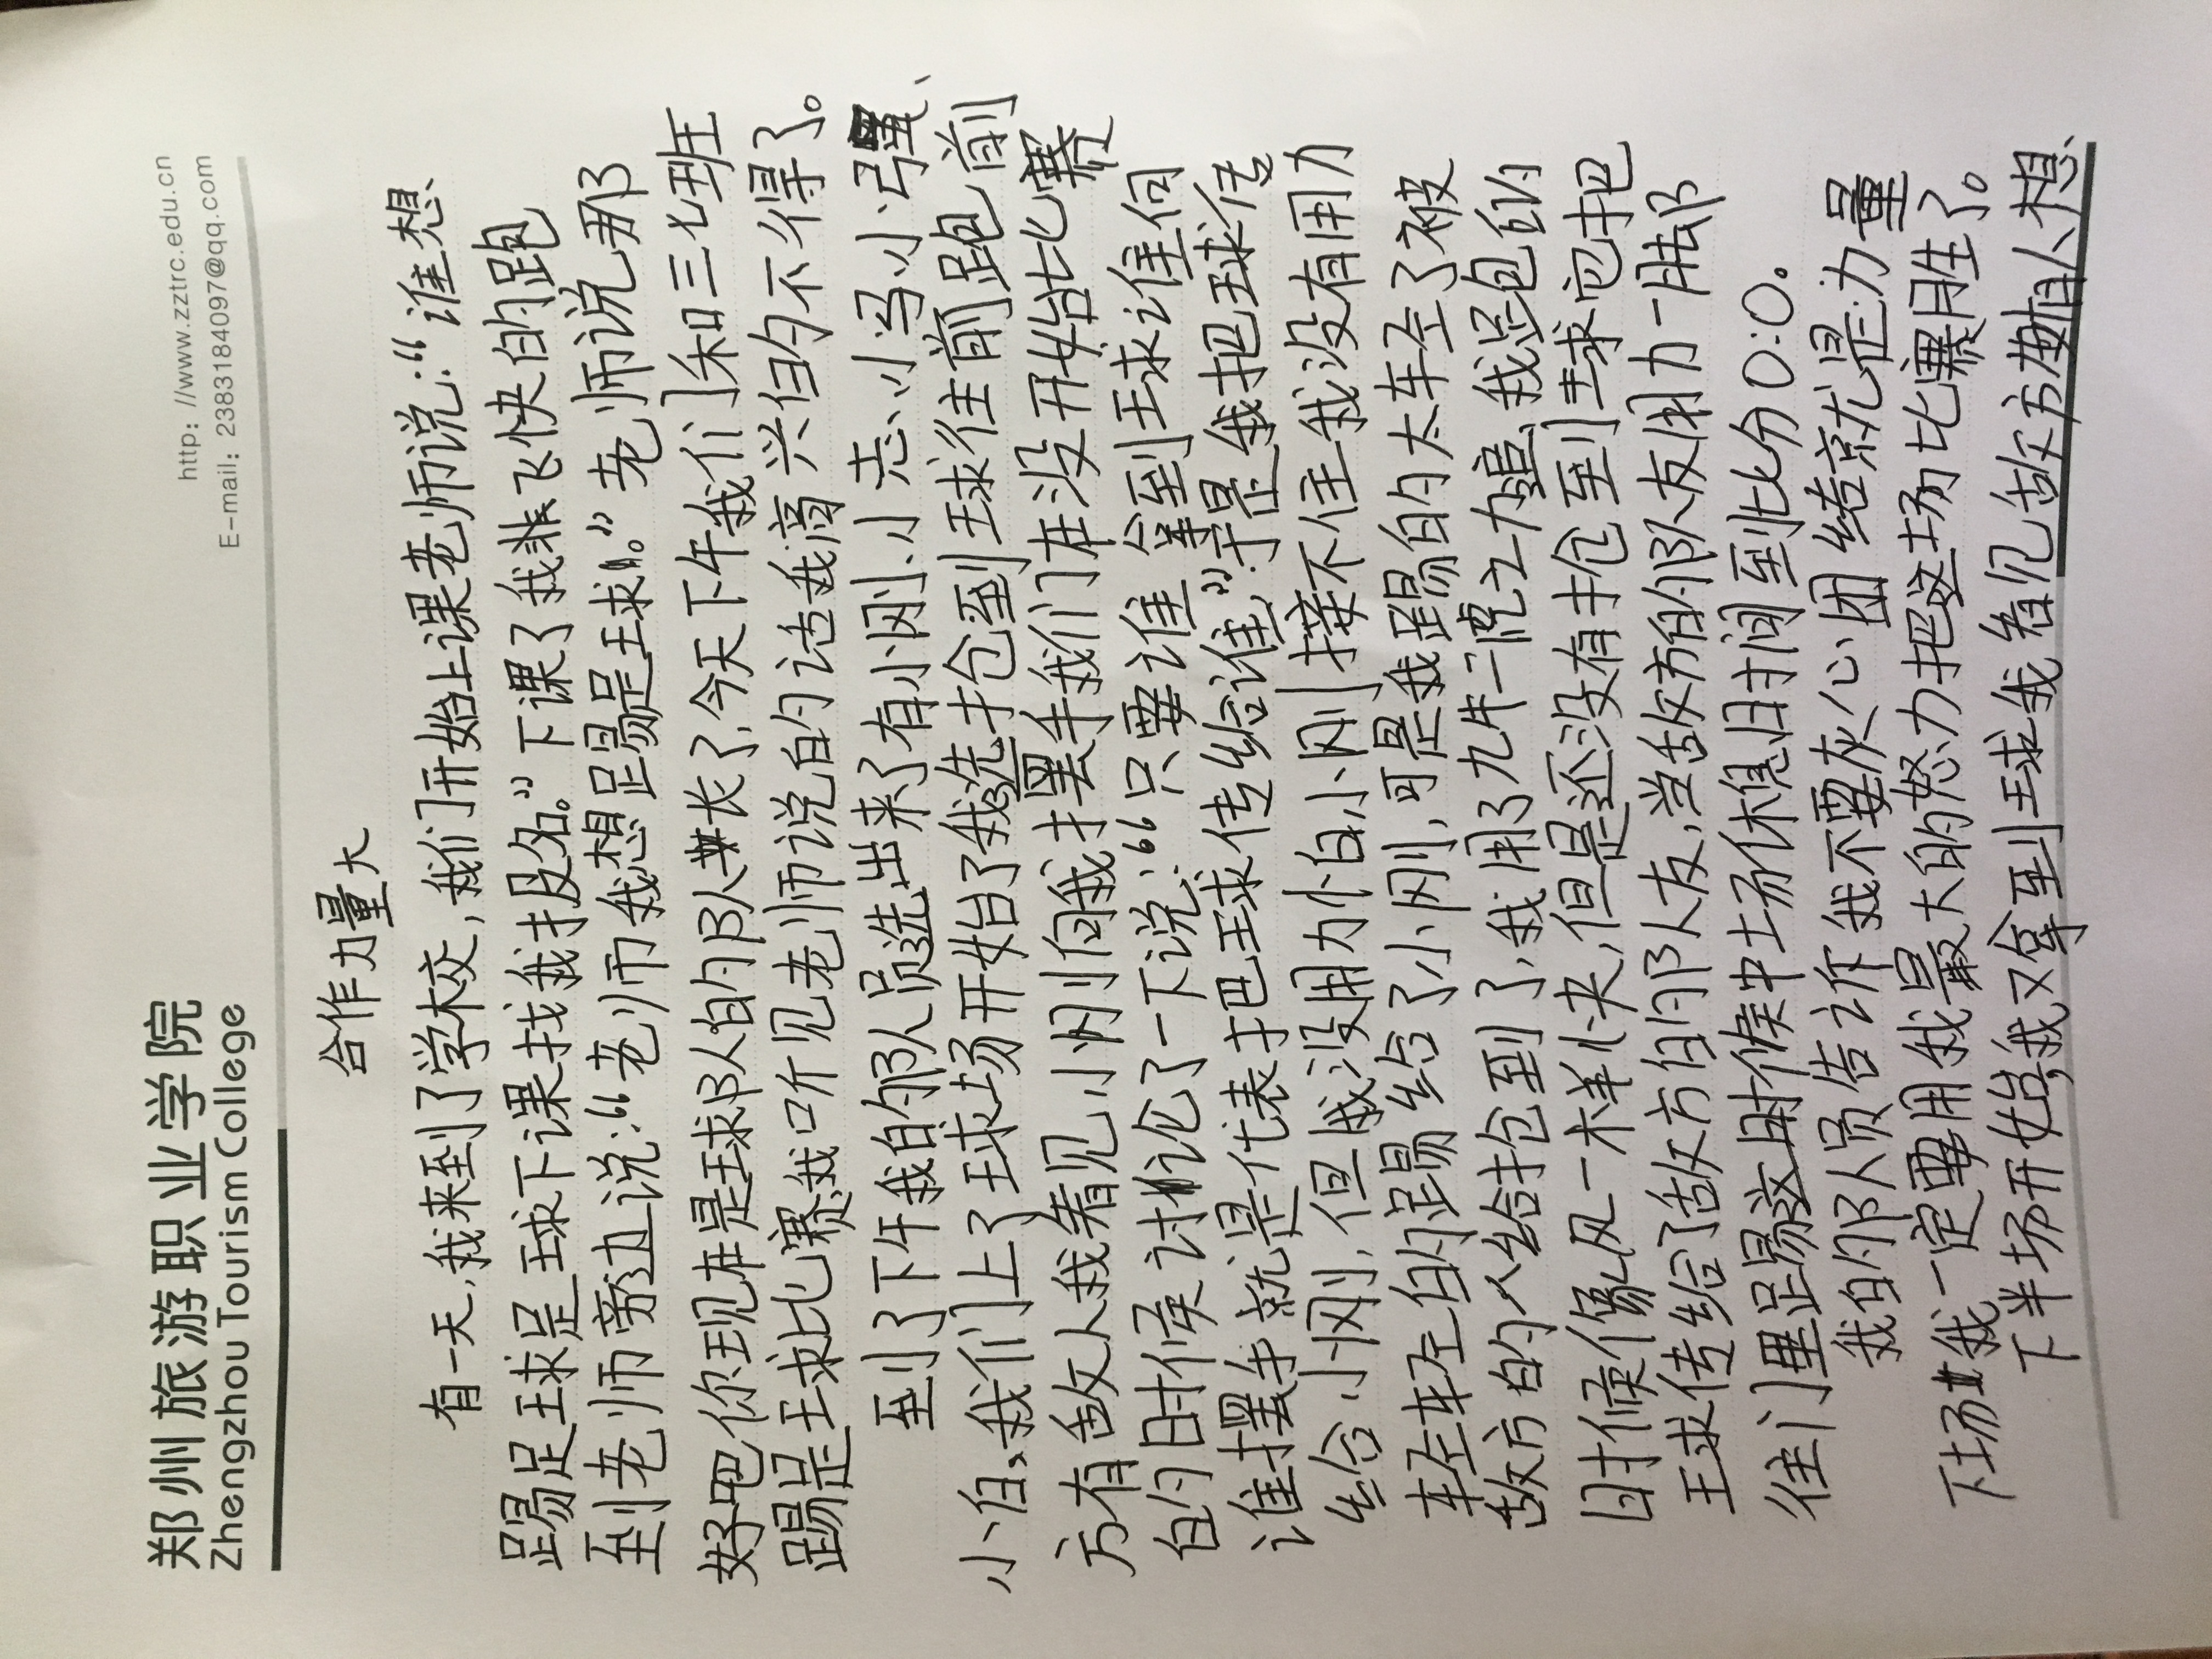 郑州旅游职业学院
Zhengzhou Tourism College
http: //www.zztrc.edu.cn
E-mail: 2383184097@qq.com
合作力量大
有一天,我来到了学校,我们开始上课老师说:“谁想
踢足球足球下课找我报名。”下课了我非飞快的跑
到老师旁边说:“老师我想踢足球。”老师说那
好吧你现在是球队的队长了,今天下午我们和三七班
踢足球比赛我听见老师说的话我高兴的不得了。
到了下午我的队员选出来了有小刚、小志、小冯、小强、
小白,我们上了球场开始了我先抢到球往前跑前
方有敌人我看见小刚向我摆手我们在没开始比赛
的时候讨论了一下说:“只要谁拿到球谁向
谁摆手就是代表把球传给谁”于是我把球传
给小刚,但我没用力怕小刚接不住我没有用力
轻轻的踢给了小刚,可是我踢的太轻了被
敌方的人给抢到了,我用了九牛二虎之力追,我跑的
时候像风一样快,但是还没有抢到球它把
球传给了敌方的队友,当敌方的队友用力一脚部
往门里踢这时候中场休息时间到比分0:0。
我的队员告诉我不要灰心团结就是力量
下场我一定要用我最大的怒力把这场比赛用生了。
下半场开始,我又拿到球我看见敌方有人想、